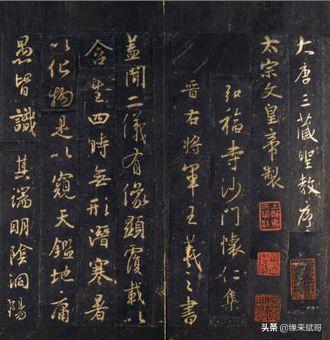 大唐三藏聖教序
太宗文皇帝製
弘福寺沙門懷仁集
晉右將軍王羲之書
蓋聞二儀有像顯覆載以
含生四時無形潛寒暑
以化物是以窺天鑑地庸
愚皆識其端明陰洞陽
头条 @缘来斌哥